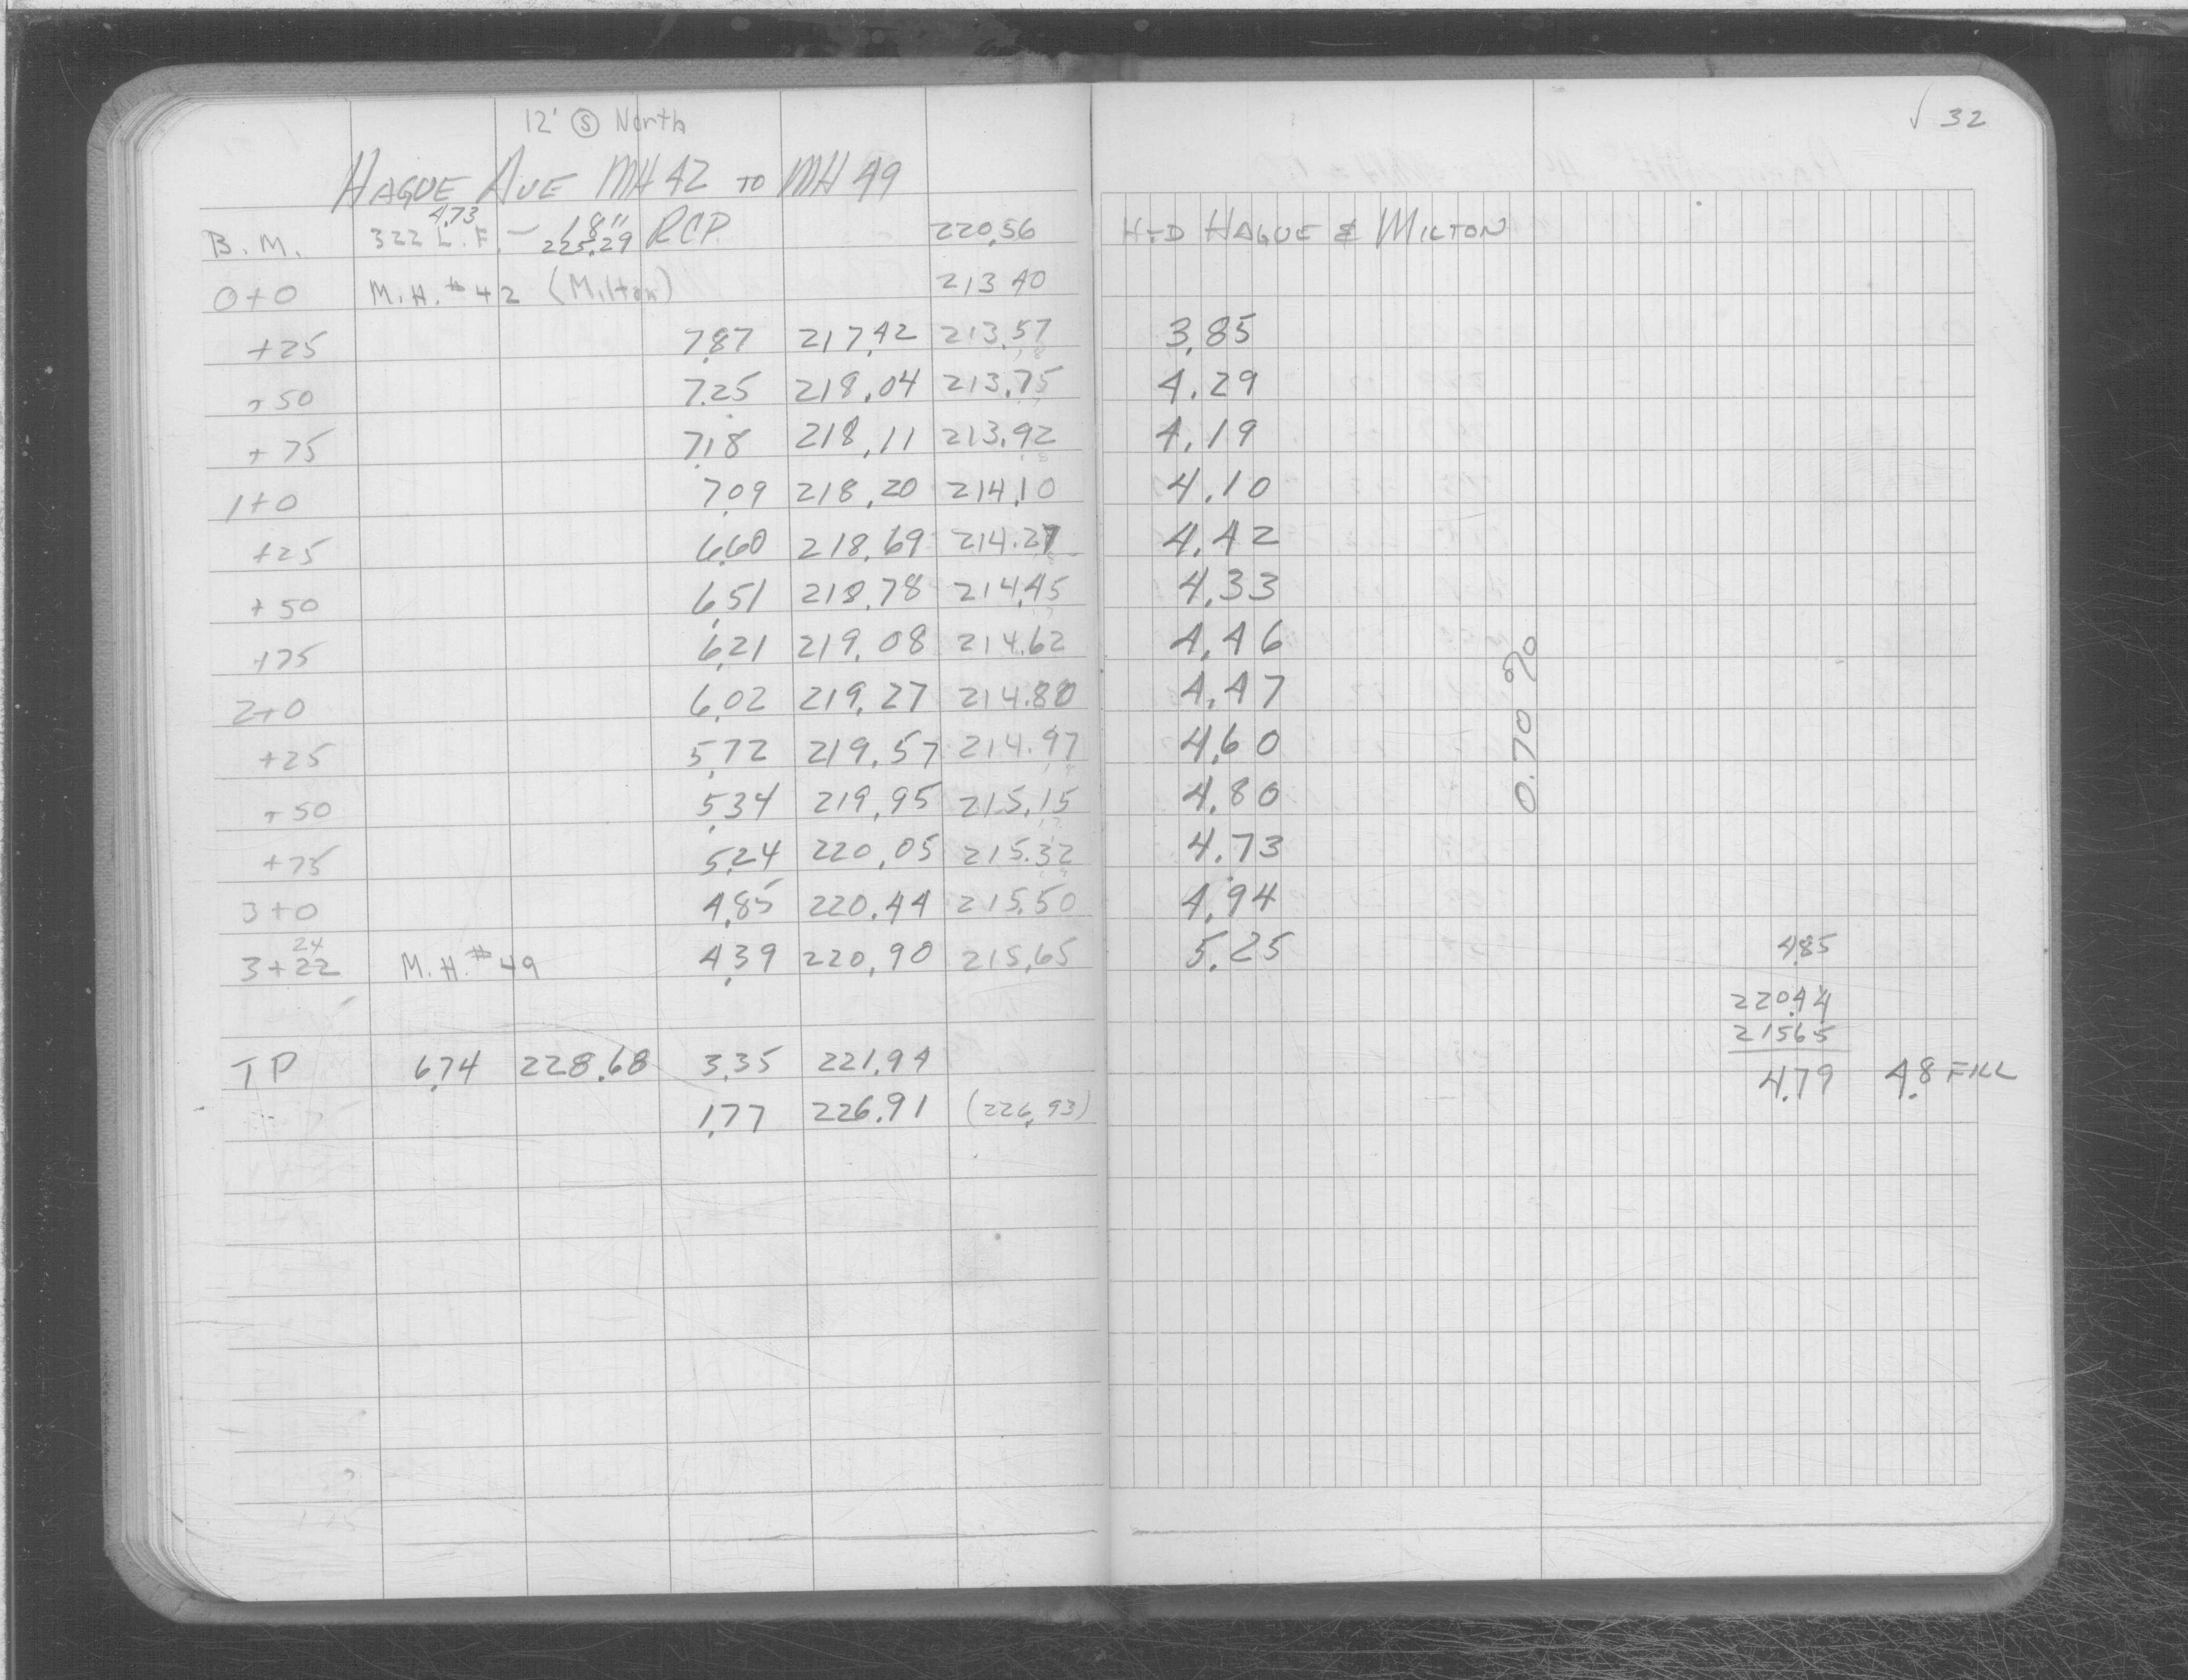 12' Ⓢ North
√ 32
HAGUE AVE MH 42 TO MH 49
4.73
B.M. 322 L.F. — 18" RCP 220.56 HYD HAGUE & MILTON
225.29
0+0 M.H. #42 (Milton) 213 40
+25 7.87 217.42 213.57 3.85
+50 7.25 218.04 213.75 4.29
+75 7.18 218.11 213.92 4.19
1+0 7.09 218.20 214.10 4.10
+25 6.60 218.69 214.27 4.42
+50 6.51 218.78 214.45 4.33
+75 6.21 219.08 214.62 4.46
2+0 6.02 219.27 214.80 4.47
+25 5.72 219.57 214.97 4.60
+50 5.34 219.95 215.15 4.80
+75 5.24 220.05 215.32 4.73
3+0 4.85 220.44 215.50 4.94
24
3+22 M.H. #49 4.39 220.90 215.65 5.25
0.70 %
4.85
220.44
215 65
TP 6.74 228.68 3.35 221.94
4.79 4.8 FILL
1.77 226.91 (226.93)